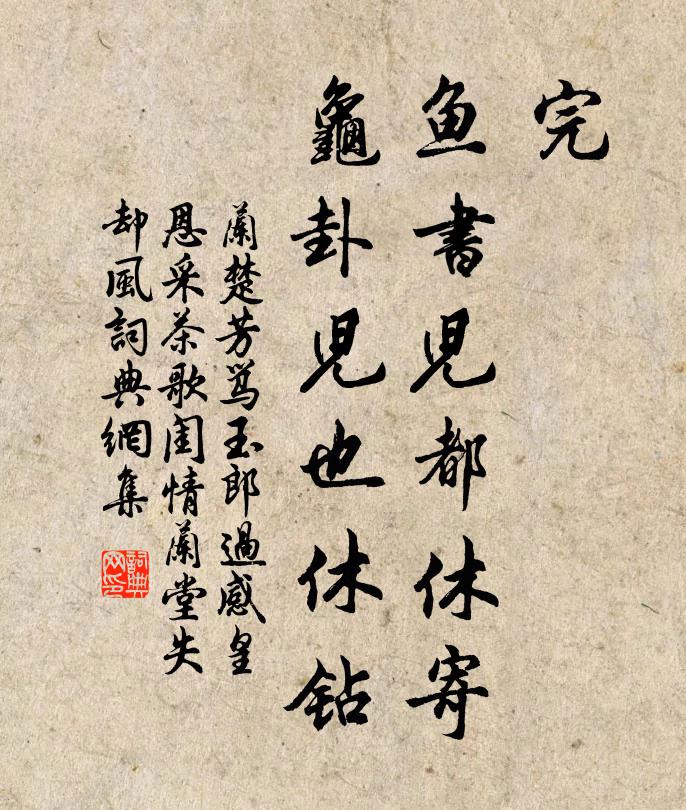 完
鱼書児都休寄
龜卦児也休钻
蘭楚芳罵玉郎過感皇
恩采茶歌閨情蘭堂失
却風詞典網集
詞典网印